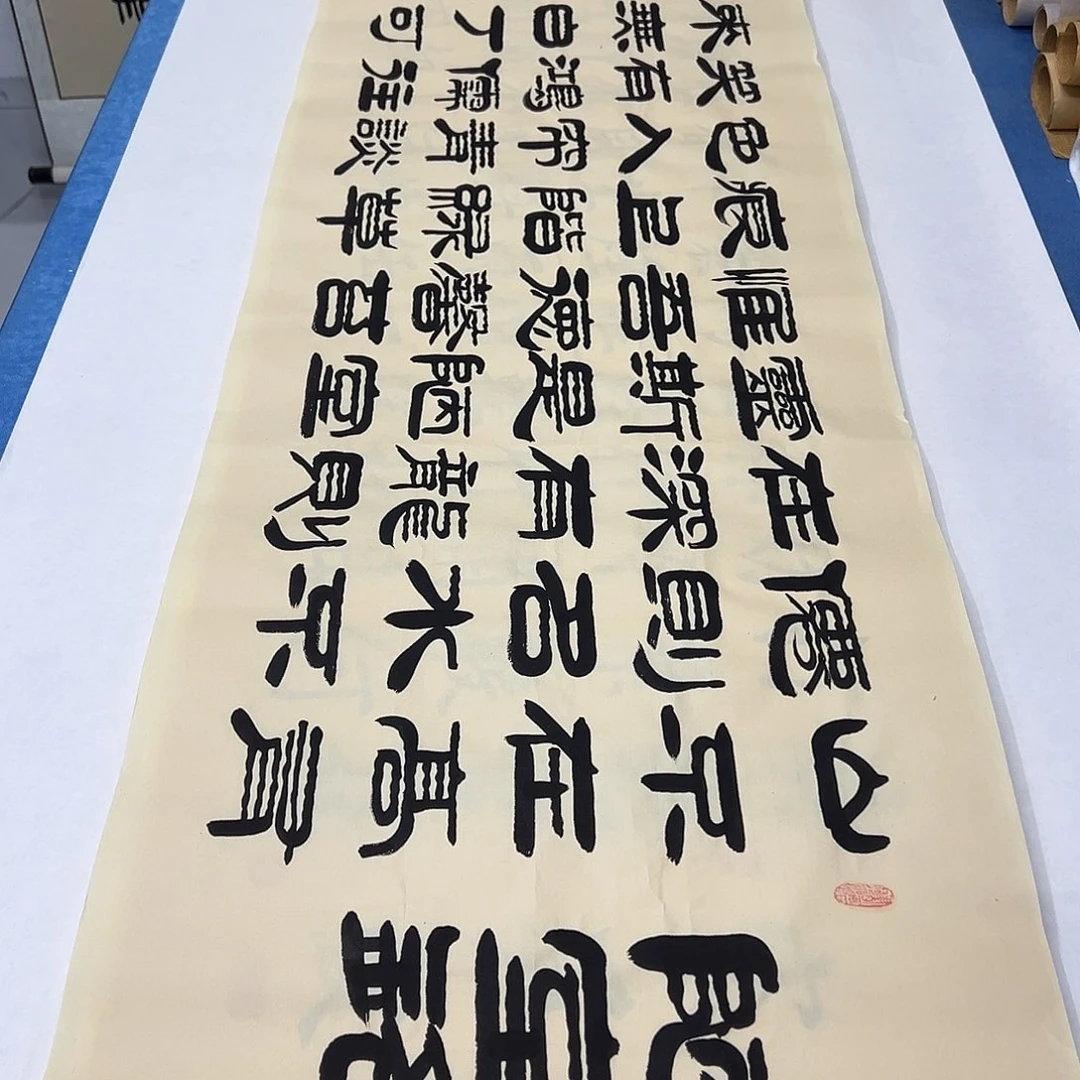 陋室銘
山不在高有
僊則名水不
在深有龍則
靈斯是陋室
惟吾德馨苔
痕上階綠草
色入帘青談
笑有鴻儒往
來無白丁可